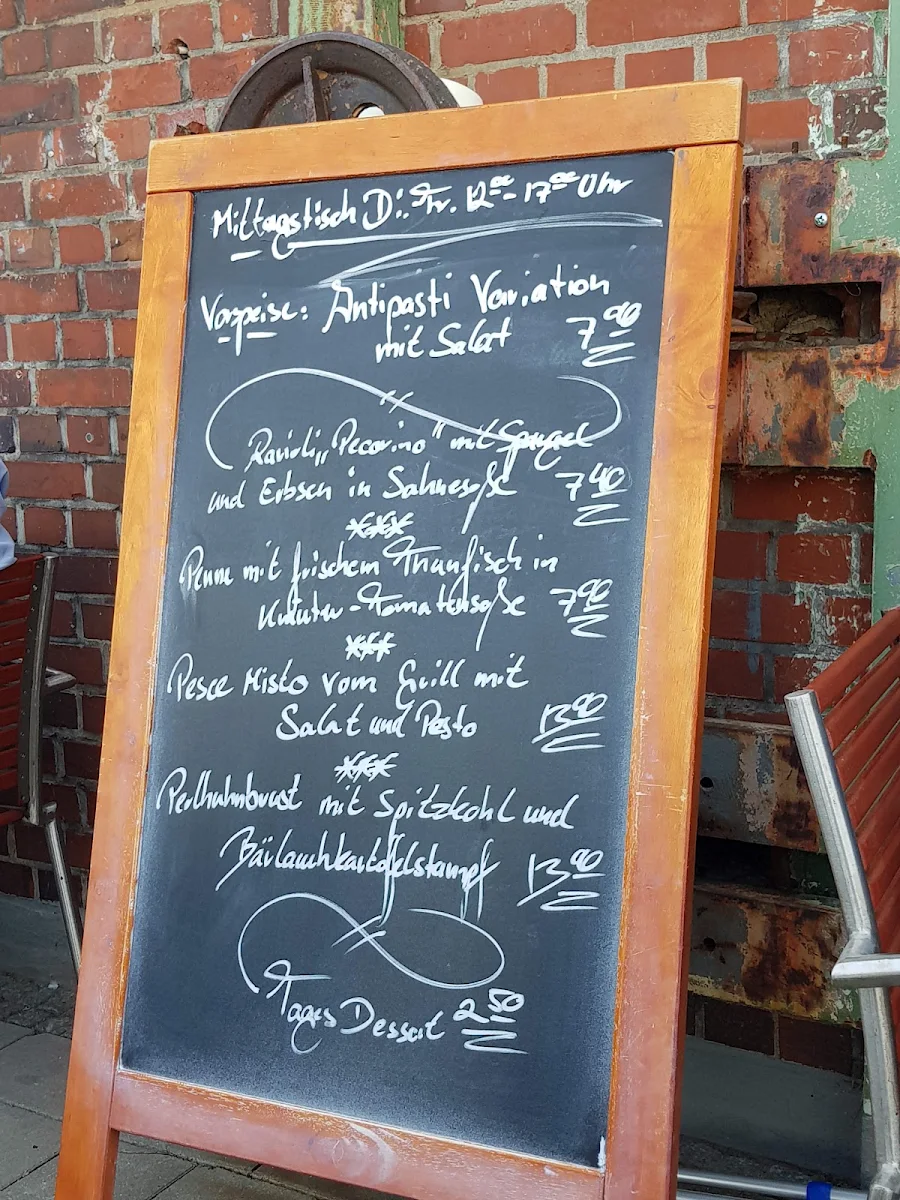 Mittagstisch Di.-Fr. 12⁰⁰-17⁰⁰ Uhr
Vorspeise: Antipasti Variation
mit Salat 7⁹⁰
Ravioli „Pecorino" mit Spargel
und Erbsen in Sahnesoße 7⁴⁰
***
Penne mit frischem Thunfisch in
Kräuter-Tomatensoße 7⁹⁰
***
Pesce Misto vom Grill mit
Salat und Pesto 13⁹⁰
***
Perlhuhnbrust mit Spitzkohl und
Bärlauchkartoffelstampf 13⁹⁰
Tages Dessert 2⁵⁰